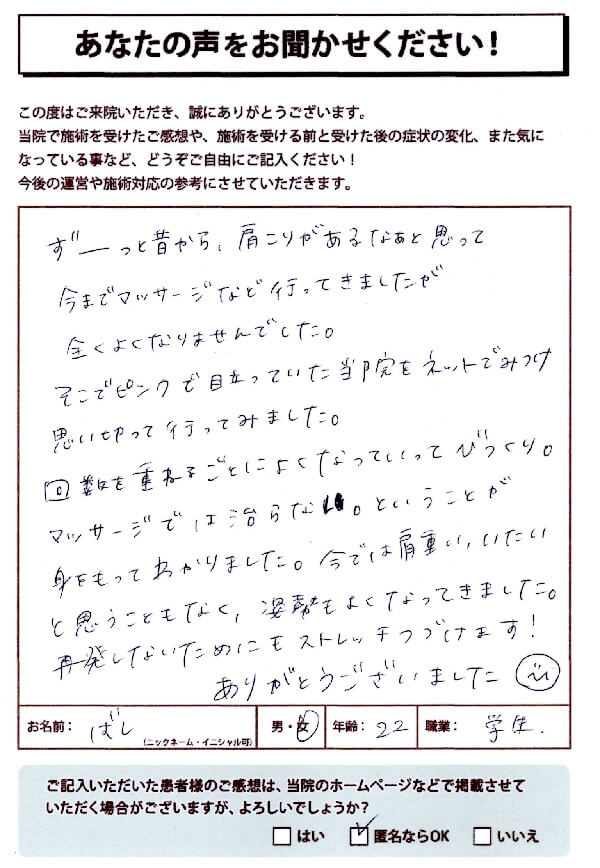 あなたの声をお聞かせください!
この度はご来院いただき、誠にありがとうございます。
当院で施術を受けたご感想や、施術を受ける前と受けた後の症状の変化、また気に
なっている事など、どうぞご自由にご記入ください!
今後の運営や施術対応の参考にさせていただきます。
ずーっと昔から、肩こりがあるなぁと思って
今までマッサージなど行ってきましたが
全くよくなりませんでした。
そこでピンクで目立っていた当院をネットでみつけ
思い切って行ってみました。
回数を重ねるごとによくなっていってびっくり。
マッサージでは治らない。ということが
身をもってわかりました。今では肩重い、いたい
と思うこともなく、姿勢もよくなってきました。
再発しないためにもストレッチつづけます!
ありがとうございました
お名前: ばし (ニックネーム・イニシャル可) 男・女 年齢: 22 職業: 学生.
ご記入いただいた患者様のご感想は、当院のホームページなどで掲載させて
いただく場合がございますが、よろしいでしょうか?
はい 匿名ならOK いいえ